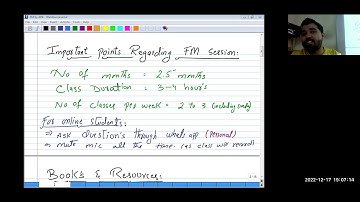 Important points Regarding FM Session:
No of months = 2.5 months
Class Duration = 3-4 hour's
No of classes per week = 2 to 3
For online students:
⇒ ASK Question's through whats app (Personal)
⇒ mute mic all the time. (as class will record)
Book's & Resources:
2022-12-17 19:07:14